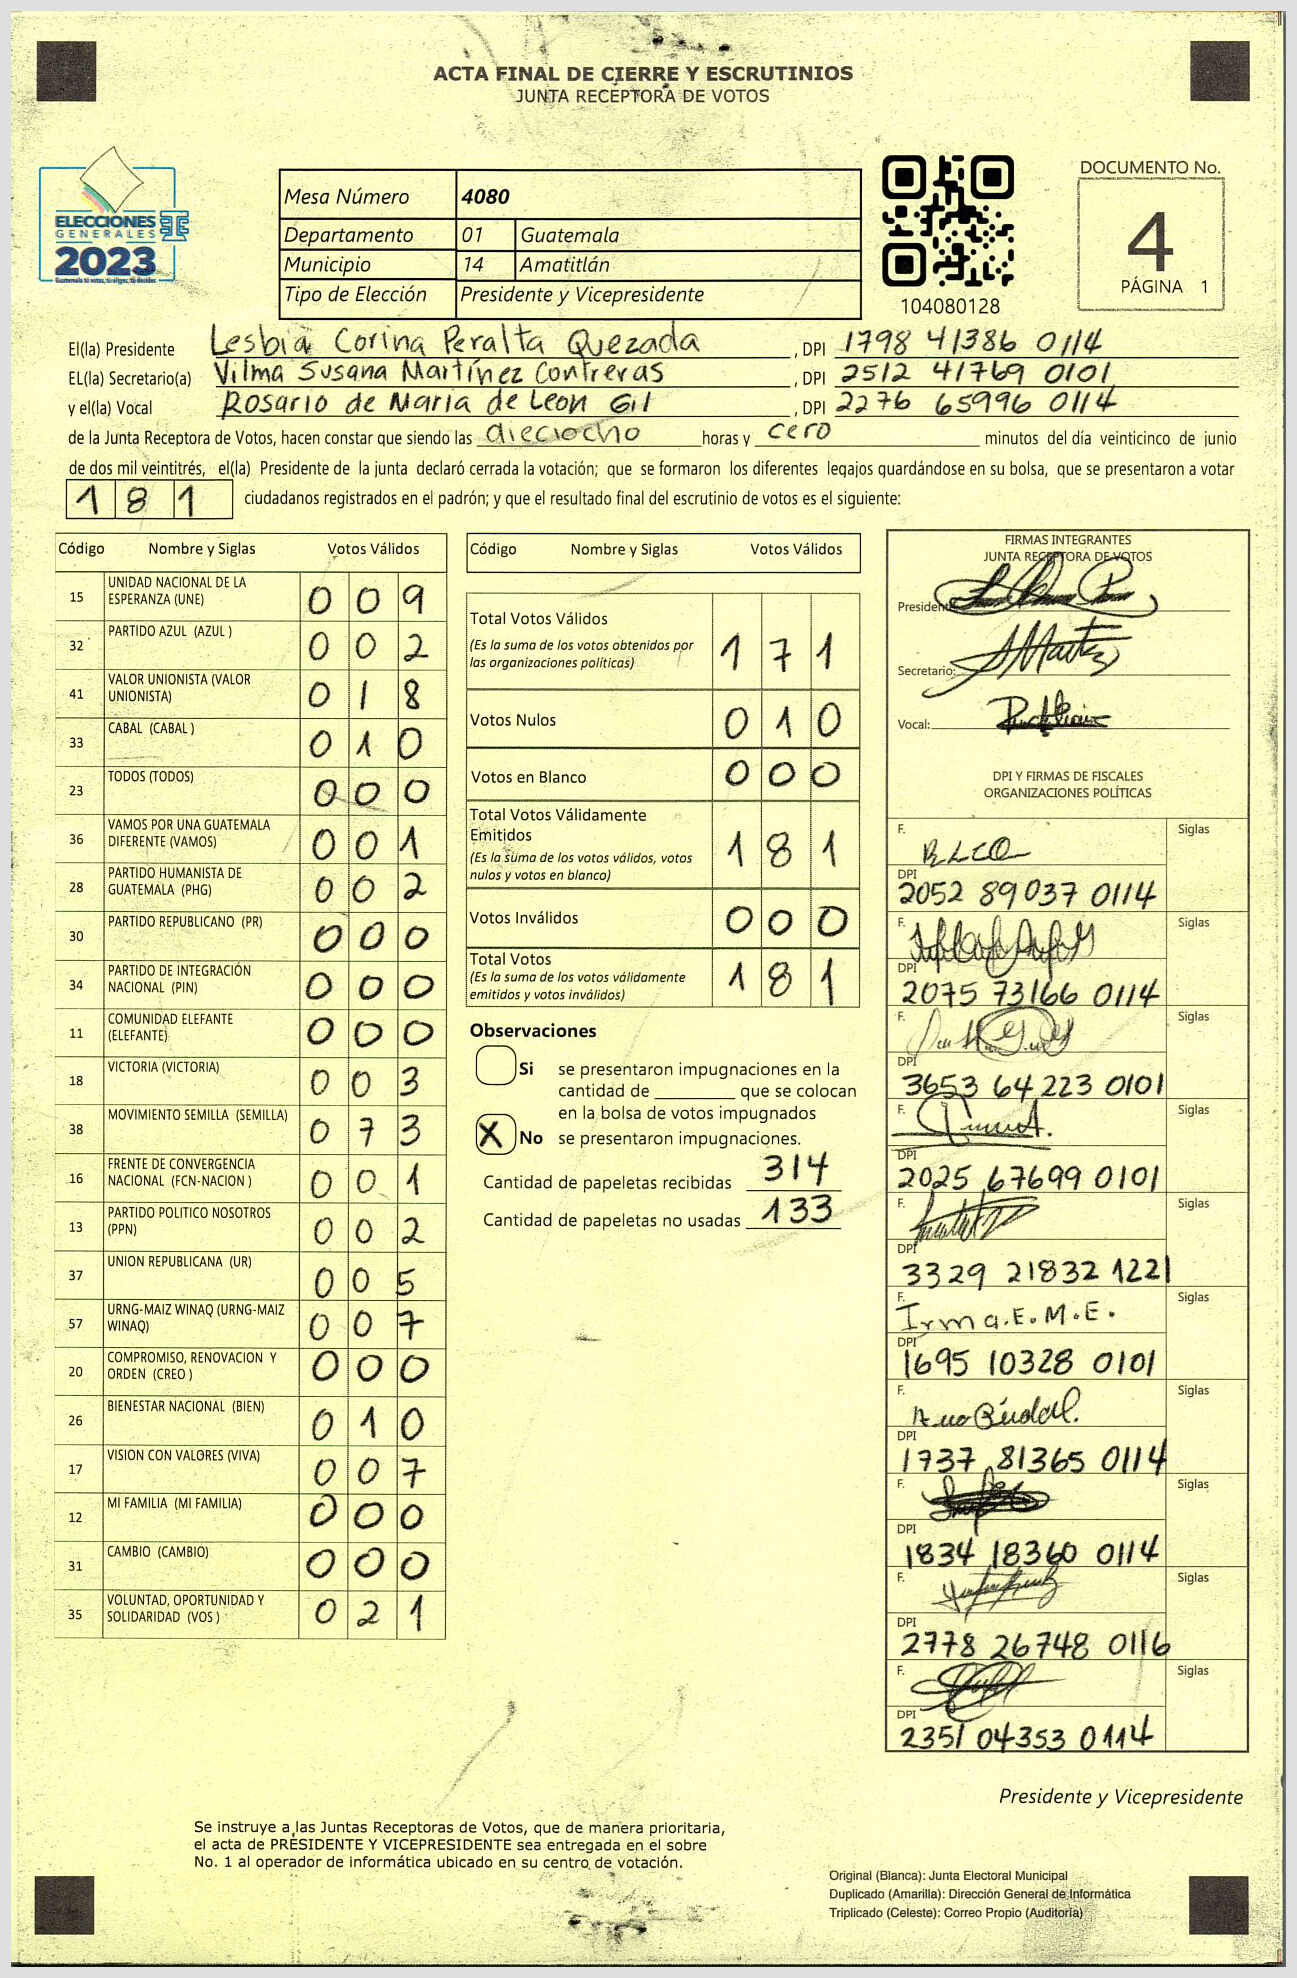 ACTA FINAL DE CIERRE Y ESCRUTINIOS
JUNTA RECEPTORA DE VOTOS
ELECCIONES
GENERALES
2023
Guatemala tú votas, tú eliges, tú decides
Mesa Número 4080
Departamento 01 Guatemala
Municipio 14 Amatitlán
Tipo de Elección Presidente y Vicepresidente
104080128
DOCUMENTO No.
4
PÁGINA 1
El(la) Presidente Lesbia Corina Peralta Quezada, DPI 1798 41386 0114
EL(la) Secretario(a) Vilma Susana Martínez Contreras, DPI 2512 41769 0101
y el(la) Vocal Rosario de Maria de Leon Gil, DPI 2276 65996 0114
de la Junta Receptora de Votos, hacen constar que siendo las dieciocho horas y cero minutos del día veinticinco de junio
de dos mil veintitrés, el(la) Presidente de la junta declaró cerrada la votación; que se formaron los diferentes legajos guardándose en su bolsa, que se presentaron a votar
181 ciudadanos registrados en el padrón; y que el resultado final del escrutinio de votos es el siguiente:
Código Nombre y Siglas Votos Válidos
15 UNIDAD NACIONAL DE LA ESPERANZA (UNE) 009
32 PARTIDO AZUL (AZUL ) 002
41 VALOR UNIONISTA (VALOR UNIONISTA) 018
33 CABAL (CABAL ) 010
23 TODOS (TODOS) 000
36 VAMOS POR UNA GUATEMALA DIFERENTE (VAMOS) 001
28 PARTIDO HUMANISTA DE GUATEMALA (PHG) 002
30 PARTIDO REPUBLICANO (PR) 000
34 PARTIDO DE INTEGRACIÓN NACIONAL (PIN) 000
11 COMUNIDAD ELEFANTE (ELEFANTE) 000
18 VICTORIA (VICTORIA) 003
38 MOVIMIENTO SEMILLA (SEMILLA) 073
16 FRENTE DE CONVERGENCIA NACIONAL (FCN-NACION ) 001
13 PARTIDO POLITICO NOSOTROS (PPN) 002
37 UNION REPUBLICANA (UR) 005
57 URNG-MAIZ WINAQ (URNG-MAIZ WINAQ) 007
20 COMPROMISO, RENOVACION Y ORDEN (CREO ) 000
26 BIENESTAR NACIONAL (BIEN) 010
17 VISION CON VALORES (VIVA) 007
12 MI FAMILIA (MI FAMILIA) 000
31 CAMBIO (CAMBIO) 000
35 VOLUNTAD, OPORTUNIDAD Y SOLIDARIDAD (VOS ) 021
Código Nombre y Siglas Votos Válidos
Total Votos Válidos 171
(Es la suma de los votos obtenidos por
las organizaciones políticas)
Votos Nulos 010
Votos en Blanco 000
Total Votos Válidamente
Emitidos 181
(Es la suma de los votos válidos, votos
nulos y votos en blanco)
Votos Inválidos 000
Total Votos 181
(Es la suma de los votos válidamente
emitidos y votos inválidos)
Observaciones
Si se presentaron impugnaciones en la
cantidad de ________ que se colocan
en la bolsa de votos impugnados
X No se presentaron impugnaciones.
Cantidad de papeletas recibidas 314
Cantidad de papeletas no usadas 133
FIRMAS INTEGRANTES
JUNTA RECEPTORA DE VOTOS
Presidente:
Secretario:
Vocal:
DPI Y FIRMAS DE FISCALES
ORGANIZACIONES POLÍTICAS
F. Siglas
DPI
2052 89037 0114
F. Siglas
DPI
2075 73166 0114
F. Siglas
DPI
3653 64223 0101
F. Siglas
DPI
2025 67699 0101
F. Siglas
DPI
3329 21832 1221
F. Irma.E.M.E. Siglas
DPI
1695 10328 0101
F. Siglas
DPI
1737 81365 0114
F. Siglas
DPI
1834 18360 0114
F. Siglas
DPI
2778 26748 0116
F. Siglas
DPI
2351 04353 0114
Presidente y Vicepresidente
Se instruye a las Juntas Receptoras de Votos, que de manera prioritaria,
el acta de PRESIDENTE Y VICEPRESIDENTE sea entregada en el sobre
No. 1 al operador de informática ubicado en su centro de votación.
Original (Blanca): Junta Electoral Municipal
Duplicado (Amarilla): Dirección General de Informática
Triplicado (Celeste): Correo Propio (Auditoría)